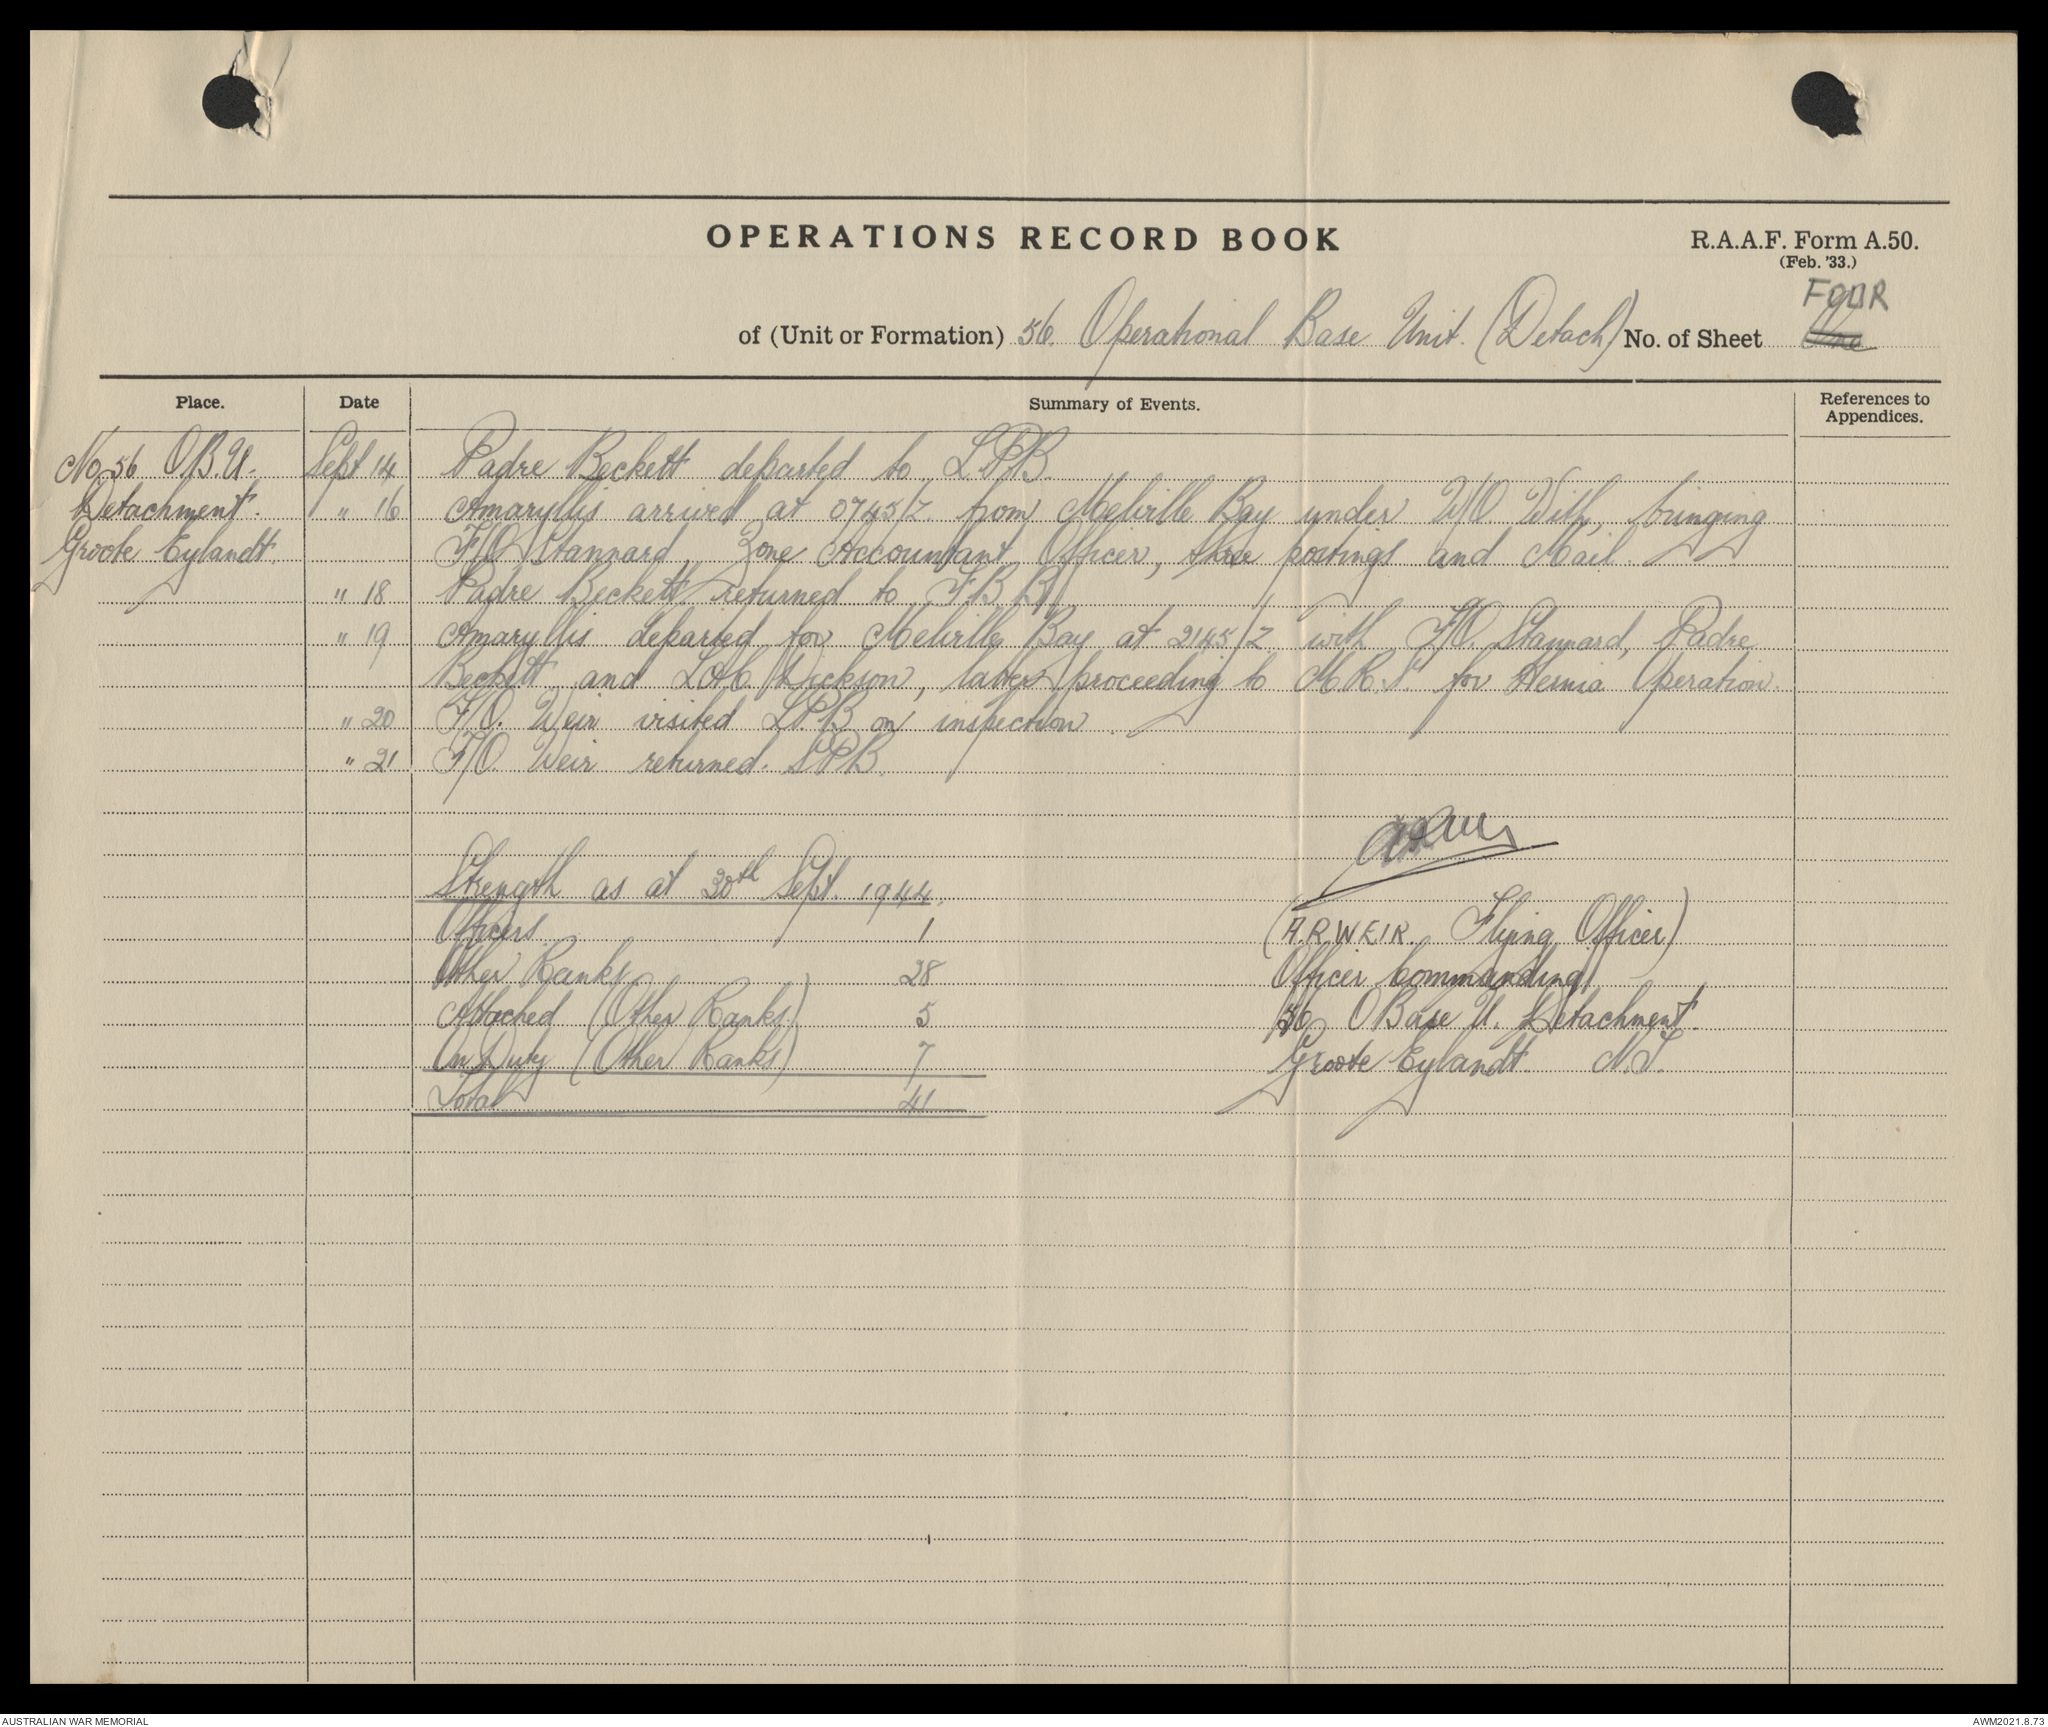 OPERATIONS RECORD BOOK
R.A.A.F. Form A.50.
(Feb. '33.)
of (Unit or Formation) 56. Operational Base Unit. (Detach) No. of Sheet One FOUR
Place. Date Summary of Events. References to Appendices.
No 56 O.B.U. Sept 14 Padre Beckett departed to L.P.B.
Detachment. " 16 Amaryllis arrived at 0745/Z from Melville Bay under W/O. With, bringing
Groote Eylandt. F/O Stannard, Zone Accountant Officer, three postings and Mail.
" 18 Padre Beckett returned to F.B.B.
" 19 Amaryllis departed for Melville Bay at 2145/Z with F/O. Stannard, Padre
Beckett and LAC. Dickson, latter proceeding to M.R.S. for Hernia Operation.
" 20 F/O. Weir visited L.P.B on inspection.
" 21 F/O. Weir returned. LPB.
Strength as at 30th Sept. 1944.
Officers. 1
Other Ranks 28
Attached (Other Ranks) 5
On Duty (Other Ranks) 7
Total 41
(A.R. WEIR. Flying Officer)
Officer Commanding
56 OBase U. Detachment.
Groote Eylandt. N.T.
AUSTRALIAN WAR MEMORIAL
AWM2021.8.73